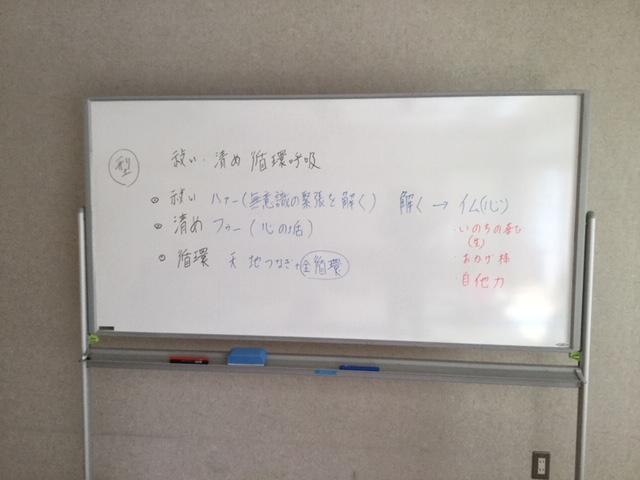 型
祓い・清め 循環呼吸
祓い ハァー(無意識の緊張を解く) 解く → イム(心)
清め フゥー(心の垢)
循環 天地つなぎ・全循環
・いのちの
(生)
・おかげ様
・自他力